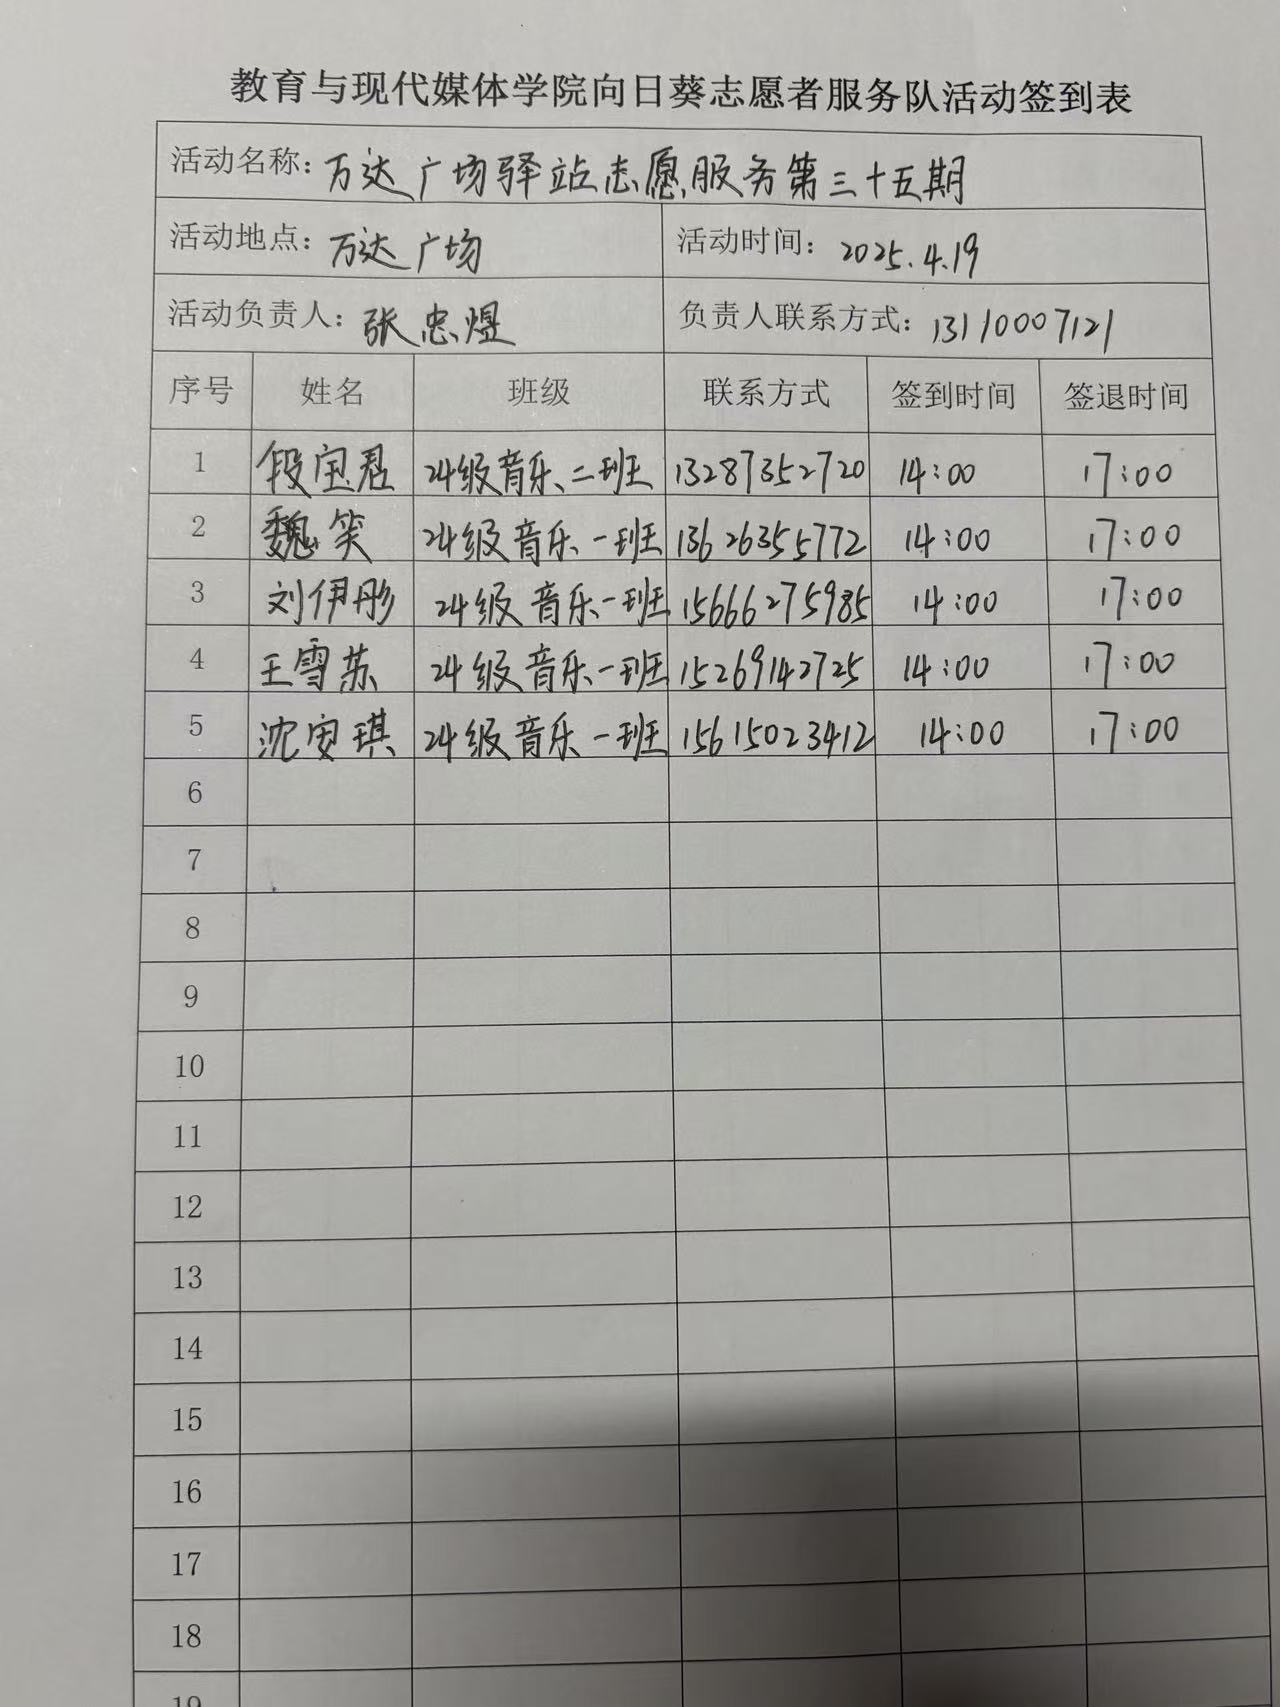 教育与现代媒体学院向日葵志愿者服务队活动签到表
活动名称：万达广场驿站志愿服务第三十五期
活动地点：万达广场 活动时间：2025.4.19
活动负责人：张忠煜 负责人联系方式：13110007121
序号 姓名 班级 联系方式 签到时间 签退时间
1 段宝君 24级音乐二班 13287352720 14:00 17:00
2 魏笑 24级音乐一班 13626355772 14:00 17:00
3 刘伊彤 24级音乐一班 15666275985 14:00 17:00
4 王雪苏 24级音乐一班 15269142725 14:00 17:00
5 沈安琪 24级音乐一班 15615023412 14:00 17:00
6
7
8
9
10
11
12
13
14
15
16
17
18
19